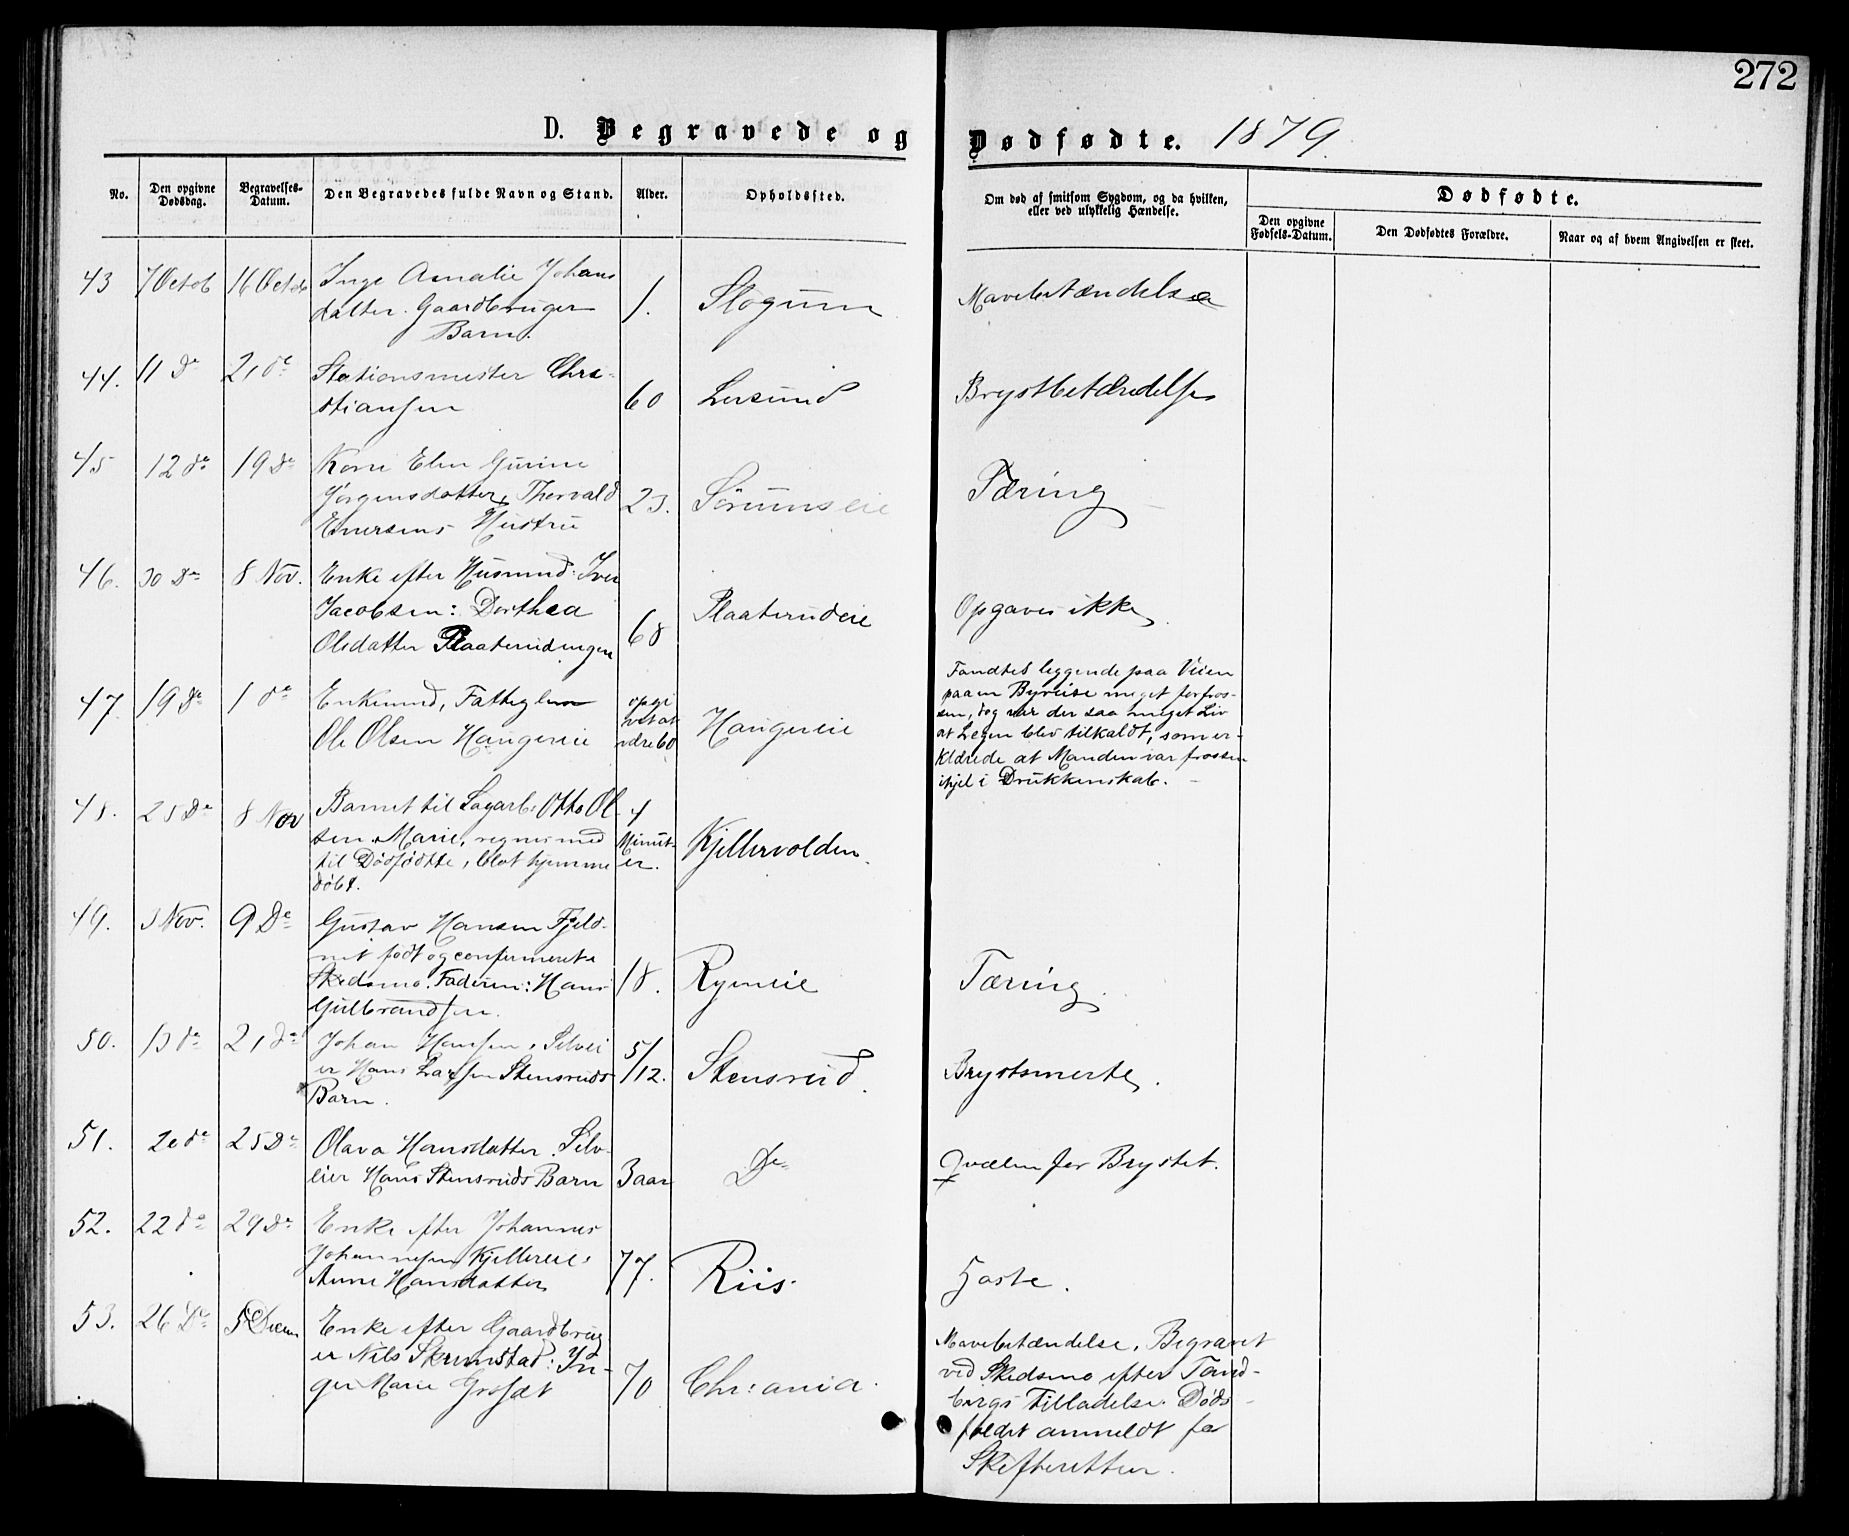 272
D. Begravede og Dødfødte. 1879.
No. Den opgivne Dødsdag. Begravelses-Datum. Den Begravedes fulde Navn og Stand. Alder. Opholdssted. Om død af smitsom Sygdom, og da hvilken, eller ved ulykkelig Hændelse. Dødfødte.
Den opgivne Fødsels-Datum. Den Dødfødtes Forældre. Naar og af hvem Angivelsen er skeet.
43 7 Octob 16 Octob Inga Amalie Johans
datter. Gaardbruger 1. Slogum Mavebetændelse
Barn.
44. 11 de 21 de Stationsmester Chri-
stiansen 60 Lersund Brystbetændelse
45 12 de 19 de Karn Elen Gurine
Jørgensdatter, Thorvald 23. Sørumseie Tæring
Enersens Hustru
46. 30 de 8 Nov. Enke efter Husmnd: Iver
Jacobsen: Dorthea Plaaterudeie Opgaves ikke.
Olsdatter Plaaterudengen 68
47. 19 de 1 de Enkemnd, Fattiglem opgi
Ole Olsen Haugereie vet at
være 60 Haugereie
Fandtes leggende paa Veien
paa en Byreise meget forfros-
sen, dog var der saa meget Liv
at Legen blev tilkaldt, som er-
klærede at Manden var frossen
ihjel i Drukkenskab.
48. 25 de 8 Nov Barnet til Sagarb: Otto Ol 4
sen, Marie, regnes med Minut-
til Dødfødte, blot hjemme er. Kjellervolden.
døbt.
49. 3 Nov. 9 de Gustav Hansen Fjeld-
født og confirmeret i
Skedsmo. Faderen: Hans 18. Ryeneie Tæring.
Gulbrandsen.
50. 13 de 21 de Johan Hansen, Selvei
er Hans Larsen Stensruds 5/12. Stensrud. Brystsmerte.
Barn.
51. 20 de 25 de Olava Hansdatter. Selv-
eier Hans Stensruds Barn 3 aar De Qvælen for Brystet.
52. 22 de 29 de Enke efter Johannes
Johannesen Kjellereie: 77. Riis. Hoste.
Anne Hansdatter
53. 26 de 5 Decem Enke efter Gaardbrug
er Nils Skrimstad: In-
ger Marie Grosæt 70 Chr:ania.
Mavebetændelse. Begravet
ved Skedsmo efter Tand-
bergs Tilladelse. Døds-
faldet anmeldt for
Skifteretten.